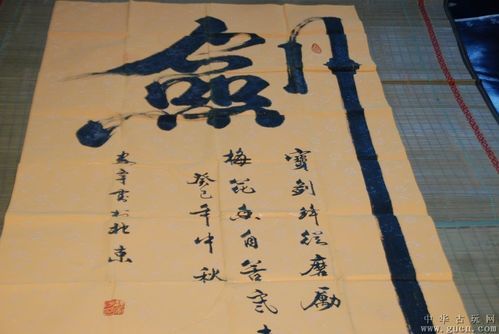 劍
寶劍鋒從磨勵
梅花香自苦寒
癸巳年仲秋
書於北京
中华古玩网
www.gucn.com